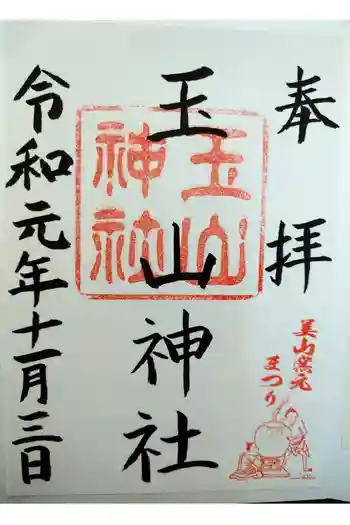 奉拝
美山窯元
まつり
玉山神社
玉山
神社
令和元年十一月三日